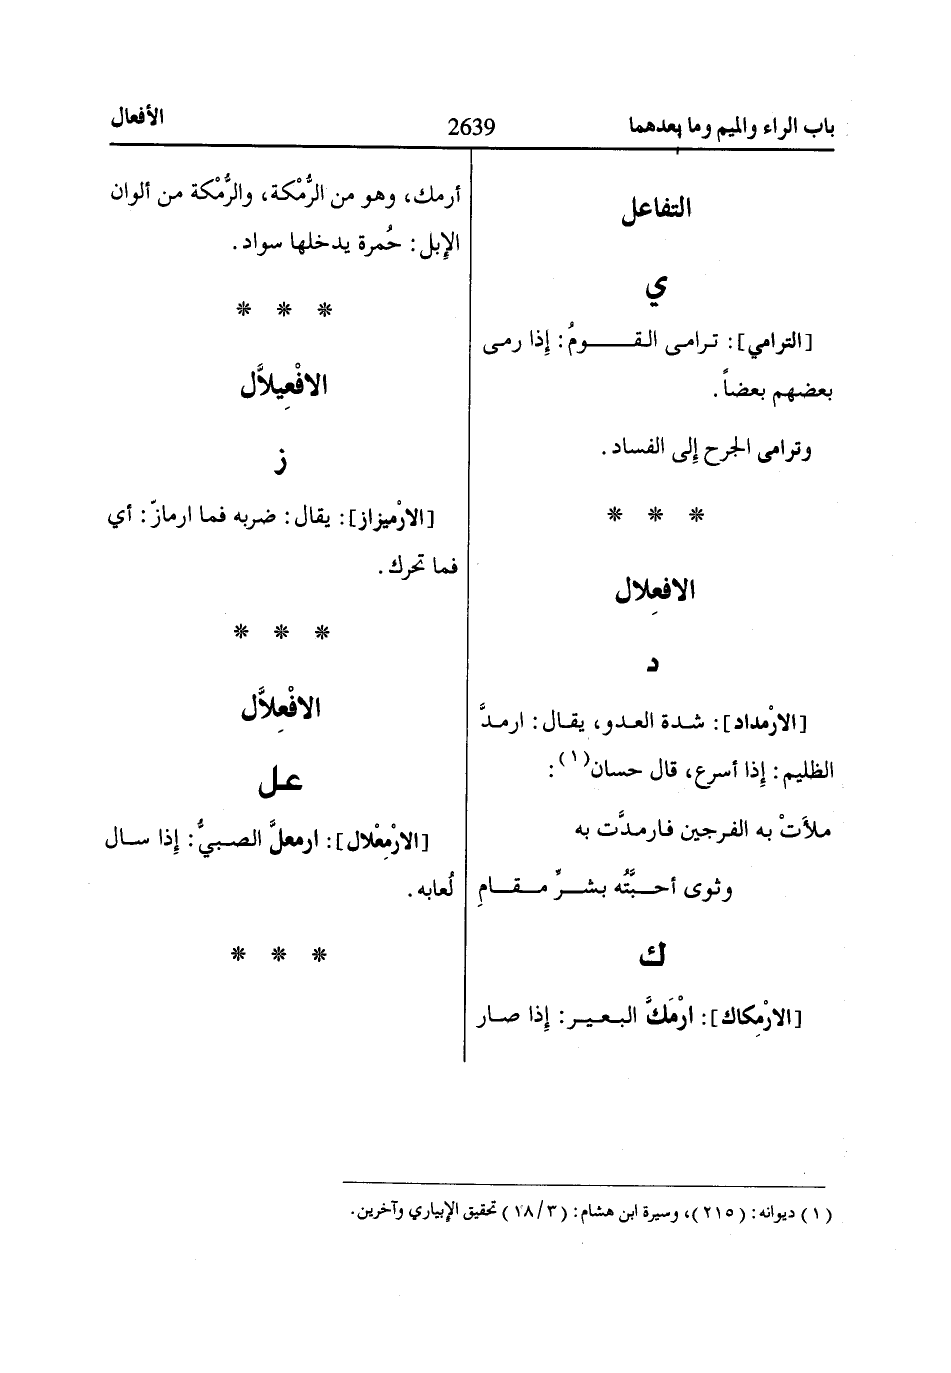 باب الراء والميم وما بعدهما
2639
الأفعال
التفاعل
ي
[الترامي]: ترامى القـــــومُ: إذا رمى
بعضهم بعضاً.
وترامى الجرح إلى الفساد.
* * *
الافعِلال
د
[الارْمداد]: شدة العدو، يقال: ارمدَّ
الظليم: إذا أسرع، قال حسان(١):
ملأتْ به الفرجين فارمدَّت به
وثوى أحـــبَّتُه بشـــرِّ مـــقـــامِ
ك
[الارْمِكاك]: ارْمَكَّ البـعـيـر: إذا صـار
أرمك، وهو من الرُّمْكة، والرُّمْكة من ألوان
الإبل: حُمرة يدخلها سواد.
* * *
الافْعِيلاَّل
ز
[الارْميزاز]: يقال: ضربه فما ارمازّ: أي
فما تحرك.
* * *
الافْعِلاَّل
عـل
[الارْمِعْلال]: ارمعلَّ الصـبيُّ: إذا سـال
لُعابه.
* * *
(١) ديوانه: (٢١٥)، وسيرة ابن هشام: (٣/ ١٨) تحقيق الإبياري وآخرين.